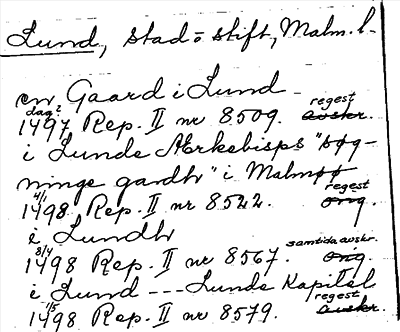 Lund, stad o stift, Malm. l.
en Gaard i Lund
dag?
1497 Rep. II nr 8509. regest avskr.
i Lunde Ærkebisps "bøg-
ninge gardh" i Malmøø
4/1 1498 Rep. II nr 8522. regest orig.
i Lundh
8/4 1498 Rep. II nr 8567. samtida avskr. orig.
i Lund --- Lunde Kapitel
1/5 1498 Rep. II nr 8579. regest avskr.